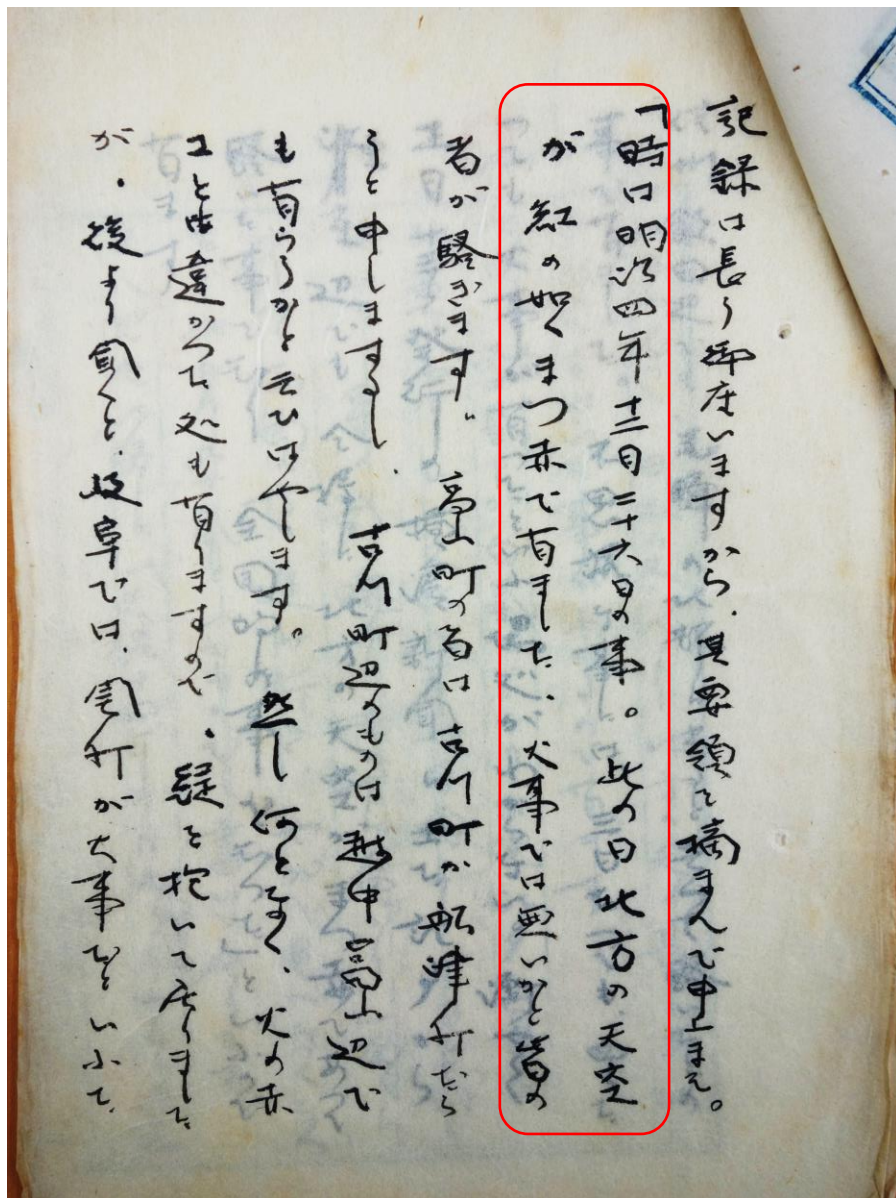 記録は長う御座いますから、其要領を摘まんで申上ます。
「時は明治四年十二月二十六日の事。此の日北方の天空
が紅の如くまつ赤で有ました、火事では無いかと皆の
者が騒ぎます。高山町の者は古川町か船津町だら
うと申しまするし、古川町辺のものは越中富山辺で
も有らうかと云ひはやします。然し何となく、火の赤
さとは違かつた処も有りますので、疑を抱いて居りました
が、後より聞くと、岐阜では、関町が大事だといふて、